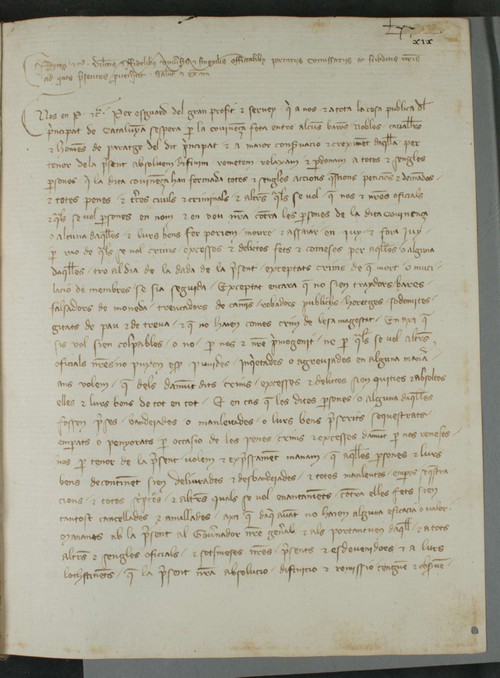 xix
ad quos presentes pervenerint Salutem et gratiam
Nos en P. etc. Per esguard del gran profit e servey que a nos e a tota la cosa publica del
principat de Catalunya sespera per la covinença feta entre alcuns barons nobles cavallers
e homens de paratge del dit principat e a maior conservacio e creximent daquella per
tenor dela present absolvem difinim remetem relaxam e perdonam a totes e sengles
persones que la dita covinença han fermada totes e sengles accions questions peticions e demandes
e totes penes e civils e criminals e altres quals se vol que nos e nostres oficials
e quals se vol persones en nom o en veu nostra contra les persones de la dita covinença
o alcuna daquelles e lurs bens fer poriem moure e assaiar en juy e fora juy
per rao de quals se vol crims excesses e delictes fets e comeses per aquelles o alguna
daquelles tro al dia de la data de la present exceptats crims de que mort o muti
lacio de membres se sia seguida Exceptat encara que no sien traydors bares
falsadors de moneda trencadors de camins robadors publichs heretges sodomites
gitats de pau e de treva e que no haien comes crim de lesa magestat En axi que
sis vol sien colpables o no per nos e nostre primogenit ne per quals se vol altres
oficials nostres no puxen esser punides inquietades o agreviades en alguna manera
ans volem que dels damunt dits crims excesses e delictes sien quities e absoltes
elles e lurs bens de tot en tot E en cas que les dites persones o alguna daquelles
fossen preses bandejades o manlevades o lurs bens perscrits sequestrats
emparats o penyorats per occasio de les penes crims e excesses damunt per nos remeses
nos per tenor de la present volem e expressament manam que aquelles persones e lurs
bens decontinent sien deliurades e desbandejades e totes manleutes empares e questra
cions e totes scriptures e altres quals se vol enantaments contra elles fets sien
tantost cancellades e anullades axi que daqui avant no haien alguna eficacia o valor
Manants ab la present al Governador nostre general e als portantveus daquell e a tots
altres e sengles oficials e sotsmeses nostres presents e esdevenidors e a lurs
lochtinents que la present nostra absolucio difinicio e remissio tenguen e observen